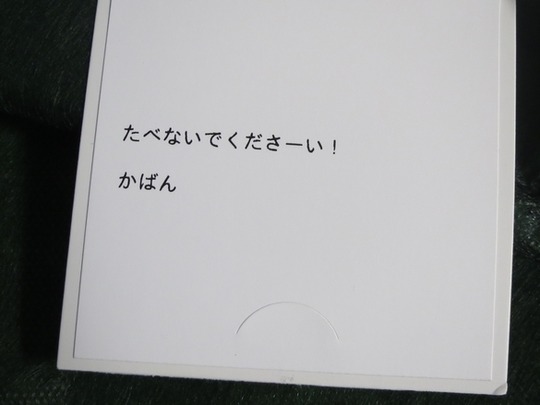 たべないでくださーい！
かばん